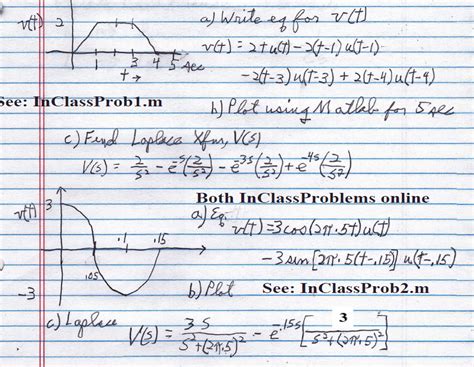 v(t) 2
1 3 4 5 sec
t →
a) Write eq for v(t)
v(t) = 2tu(t) - 2(t-1)u(t-1)
-2(t-3)u(t-3) + 2(t-4)u(t-4)
See: InClassProb1.m
b) Plot using Matlab for 5 sec
c) Find Laplace Xfm, V(s)
V(s) = 2/s² - e^-s(2/s²) - e^-3s(2/s²) + e^-4s(2/s²)
Both InClassProblems online
v(t) 3
-3
.05 .1 .15
a) Eq.
v(t) = 3cos(2π·5t)u(t)
-3 sin[2π·5(t-.15)]u(t-.15)
b) Plot See: InClassProb2.m
c) Laplace
V(s) = 3s/s²+(2π·5)² - e^-.15s[3/s²+(2π·5)²]